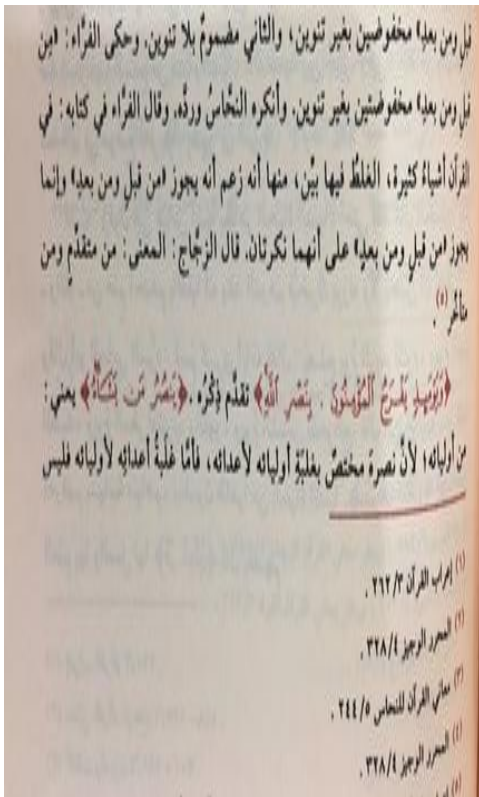 قبلِ ومن بعدِ» مخفوضين بغير تنوين، والثاني مضمومٌ بلا تنوين. وحكى الفرَّاء: «مِن
قبلِ ومن بعدِ» مخفوضين بغير تنوين. وأنكره النحَّاسُ وردَّه. وقال الفرَّاء في كتابه: في
القرآن أشياءُ كثيرة، الغلطُ فيها بيِّن، منها أنه زعم أنه يجوز «من قبلِ ومن بعدِ» وإنما
يجوز «من قبلٍ ومن بعدٍ» على أنهما نكرتان. قال الزجَّاج: المعنى: من متقدِّمٍ ومن
متأخرٍ(٥).
﴿وَيَوْمَئِذٍ يَفْرَحُ الْمُؤْمِنُونَ . بِنَصْرِ اللَّهِ﴾ تقدَّم ذِكْرُه. ﴿يَنصُرُ مَن يَشَاءُ﴾ يعني:
من أوليائه؛ لأنَّ نصرهُ مختصٌّ بغلبةِ أوليائه لأعدائه، فأمَّا غلَبةُ أعدائِه لأوليائه فليس
(١) إعراب القرآن ٢٦٢/٣ .
(٢) المحرر الوجيز ٣٢٨/٤ .
(٣) معاني القرآن للنحاس ٢٤٤/٥ .
(٤) المحرر الوجيز ٣٢٨/٤ .
(٥)